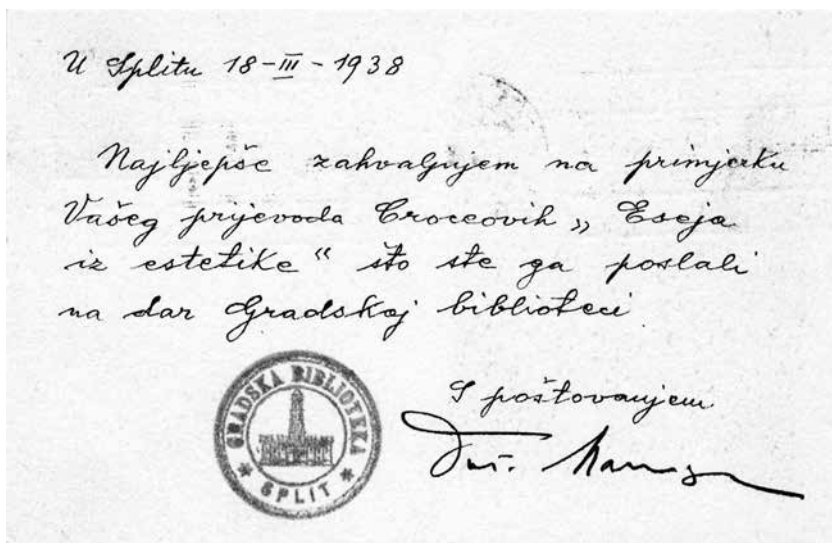 U Splitu 18-III-1938
Najljepše zahvaljujem na primjerku
Vašeg prijevoda Croceovih „ Eseja
iz estetike“ što ste ga poslali
na dar Gradskoj biblioteci
GRADSKA BIBLIOTEKA
* SPLIT *
S poštovanjem
Duš.